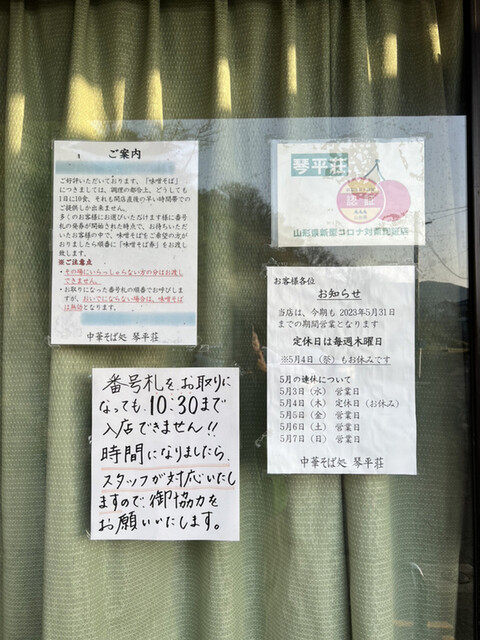 ご案内
ご好評いただいております。「味噌そば」
につきましては、調理の都合上、どうしても
1日に10食、それも開店直後の早い時間帯での
ご提供しか出来ません。
多くのお客様にお並びいただけます様に番号
札の発券が開始された時点で、お待ちいただい
たお客様の中で、味噌そばをご希望の方が
おりましたら順番に「味噌そば券」をお渡し
致します。
※ご注意点
・その場にいらっしゃらない方の分はお渡し
できません。
・お取りになった番号札の順番でお呼びします
が、おいでにならない場合は、味噌そば
は無効となります。
中華そば処 琴平荘
琴平荘
認証
山形県新型コロナ対策認証店
お客様各位
お知らせ
当店は、今期も 2023年5月31日
までの期間営業となります
定休日は毎週木曜日
※5月4日（祭）もお休みです
5月の連休について
5月3日（水） 営業日
5月4日（木） 定休日（お休み）
5月5日（金） 営業日
5月6日（土） 営業日
5月7日（日） 営業日
中華そば処 琴平荘
番号札を、お取りに
なっても、10:30まで
入店できません!!
時間になりましたら、
スタッフが対応いたし
ますので、御協力を
お願いいたします。